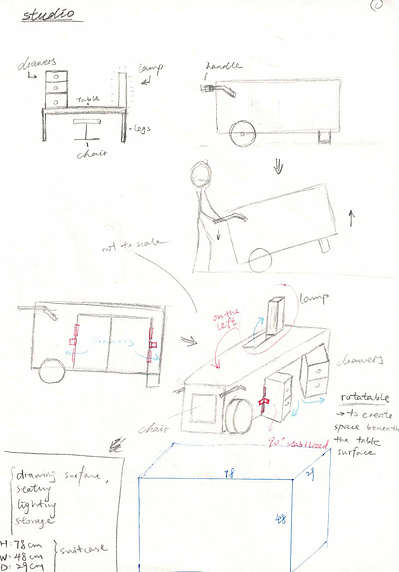 studio
drawers
lamp
table
legs
chair
handle
not to scale
on the
left
lamp
drawers
drawers
rotatable
→ to create
space beneath
the table
surface
chair
90° stabilized
drawing surface,
seating
lighting
storage
H: 78cm
W: 48cm
D: 29cm
suitcase
78
29
48